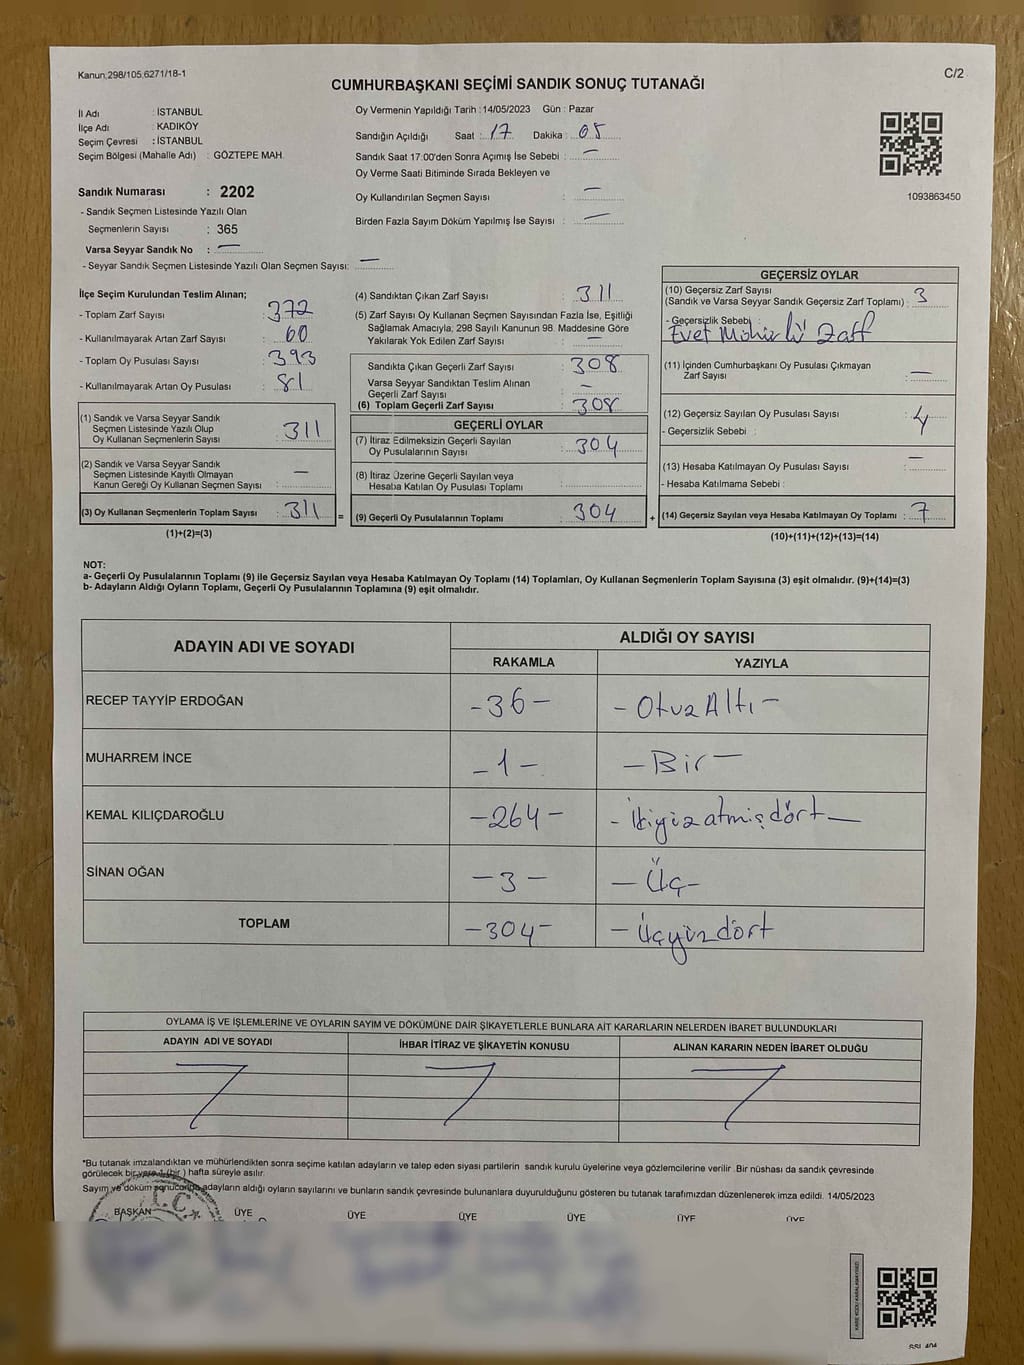 Kanun;298/105,6271/18-1
C/2
CUMHURBAŞKANI SEÇİMİ SANDIK SONUÇ TUTANAĞI
İl Adı : İSTANBUL
İlçe Adı : KADIKÖY
Seçim Çevresi : İSTANBUL
Seçim Bölgesi (Mahalle Adı) : GÖZTEPE MAH.
Sandık Numarası : 2202
- Sandık Seçmen Listesinde Yazılı Olan
Seçmenlerin Sayısı : 365
Varsa Seyyar Sandık No : —
- Seyyar Sandık Seçmen Listesinde Yazılı Olan Seçmen Sayısı: —
Oy Vermenin Yapıldığı Tarih :14/05/2023 Gün : Pazar
Sandığın Açıldığı Saat : 17 Dakika : 05
Sandık Saat 17.00'den Sonra Açımış İse Sebebi : —
Oy Verme Saati Bitiminde Sırada Bekleyen ve
Oy Kullandırılan Seçmen Sayısı : —
Birden Fazla Sayım Döküm Yapılmış İse Sayısı : —
1093863450
İlçe Seçim Kurulundan Teslim Alınan;
- Toplam Zarf Sayısı : 372
- Kullanılmayarak Artan Zarf Sayısı : 60
- Toplam Oy Pusulası Sayısı : 393
- Kullanılmayarak Artan Oy Pusulası : 81
(1) Sandık ve Varsa Seyyar Sandık
Seçmen Listesinde Yazılı Olup
Oy Kullanan Seçmenlerin Sayısı : 311
(2) Sandık ve Varsa Seyyar Sandık
Seçmen Listesinde Kayıtlı Olmayan
Kanun Gereği Oy Kullanan Seçmen Sayısı : —
(3) Oy Kullanan Seçmenlerin Toplam Sayısı : 311
(1)+(2)=(3)
=
(4) Sandıktan Çıkan Zarf Sayısı : 311
(5) Zarf Sayısı Oy Kullanan Seçmen Sayısından Fazla İse, Eşitliği
Sağlamak Amacıyla; 298 Sayılı Kanunun 98. Maddesine Göre
Yakılarak Yok Edilen Zarf Sayısı : —
Sandıkta Çıkan Geçerli Zarf Sayısı : 308
Varsa Seyyar Sandıktan Teslim Alınan
Geçerli Zarf Sayısı : —
(6) Toplam Geçerli Zarf Sayısı : 308
GEÇERLİ OYLAR
(7) İtiraz Edilmeksizin Geçerli Sayılan
Oy Pusulalarının Sayısı : 304
(8) İtiraz Üzerine Geçerli Sayılan veya
Hesaba Katılan Oy Pusulası Toplamı :
(9) Geçerli Oy Pusulalarının Toplamı : 304
+
GEÇERSİZ OYLAR
(10) Geçersiz Zarf Sayısı
(Sandık ve Varsa Seyyar Sandık Geçersiz Zarf Toplamı) : 3
- Geçersizlik Sebebi :
Evet Mühürlü Zarf
(11) İçinden Cumhurbaşkanı Oy Pusulası Çıkmayan
Zarf Sayısı : —
(12) Geçersiz Sayılan Oy Pusulası Sayısı : 4
- Geçersizlik Sebebi :
(13) Hesaba Katılmayan Oy Pusulası Sayısı : —
- Hesaba Katılmama Sebebi :
(14) Geçersiz Sayılan veya Hesaba Katılmayan Oy Toplamı : 7
(10)+(11)+(12)+(13)=(14)
NOT:
a- Geçerli Oy Pusulalarının Toplamı (9) ile Geçersiz Sayılan veya Hesaba Katılmayan Oy Toplamı (14) Toplamları, Oy Kullanan Seçmenlerin Toplam Sayısına (3) eşit olmalıdır. (9)+(14)=(3)
b- Adayların Aldığı Oyların Toplamı, Geçerli Oy Pusulalarının Toplamına (9) eşit olmalıdır.
ADAYIN ADI VE SOYADI
ALDIĞI OY SAYISI
RAKAMLA YAZIYLA
RECEP TAYYİP ERDOĞAN -36- -OtuzAltı-
MUHARREM İNCE -1- -Bir-
KEMAL KILIÇDAROĞLU -264- -ikiyüzatmışdört-
SİNAN OĞAN -3- -Üç-
TOPLAM -304- -Üçyüzdört
OYLAMA İŞ VE İŞLEMLERİNE VE OYLARIN SAYIM VE DÖKÜMÜNE DAİR ŞİKAYETLERLE BUNLARA AİT KARARLARIN NELERDEN İBARET BULUNDUKLARI
ADAYIN ADI VE SOYADI İHBAR İTİRAZ VE ŞİKAYETİN KONUSU ALINAN KARARIN NEDEN İBARET OLDUĞU
*Bu tutanak imzalandıktan ve mühürlendikten sonra seçime katılan adayların ve talep eden siyasi partilerin sandık kurulu üyelerine veya gözlemcilerine verilir .Bir nüshası da sandık çevresinde
görülecek bir yere 1 (bir ) hafta süreyle asılır.
Sayım ve döküm sonucunda adayların aldığı oyların sayılarını ve bunların sandık çevresinde bulunanlara duyurulduğunu gösteren bu tutanak tarafımızdan düzenlenerek imza edildi. 14/05/2023
T.C.
BAŞKAN ÜYE ÜYE ÜYE ÜYE ÜYE ÜYE